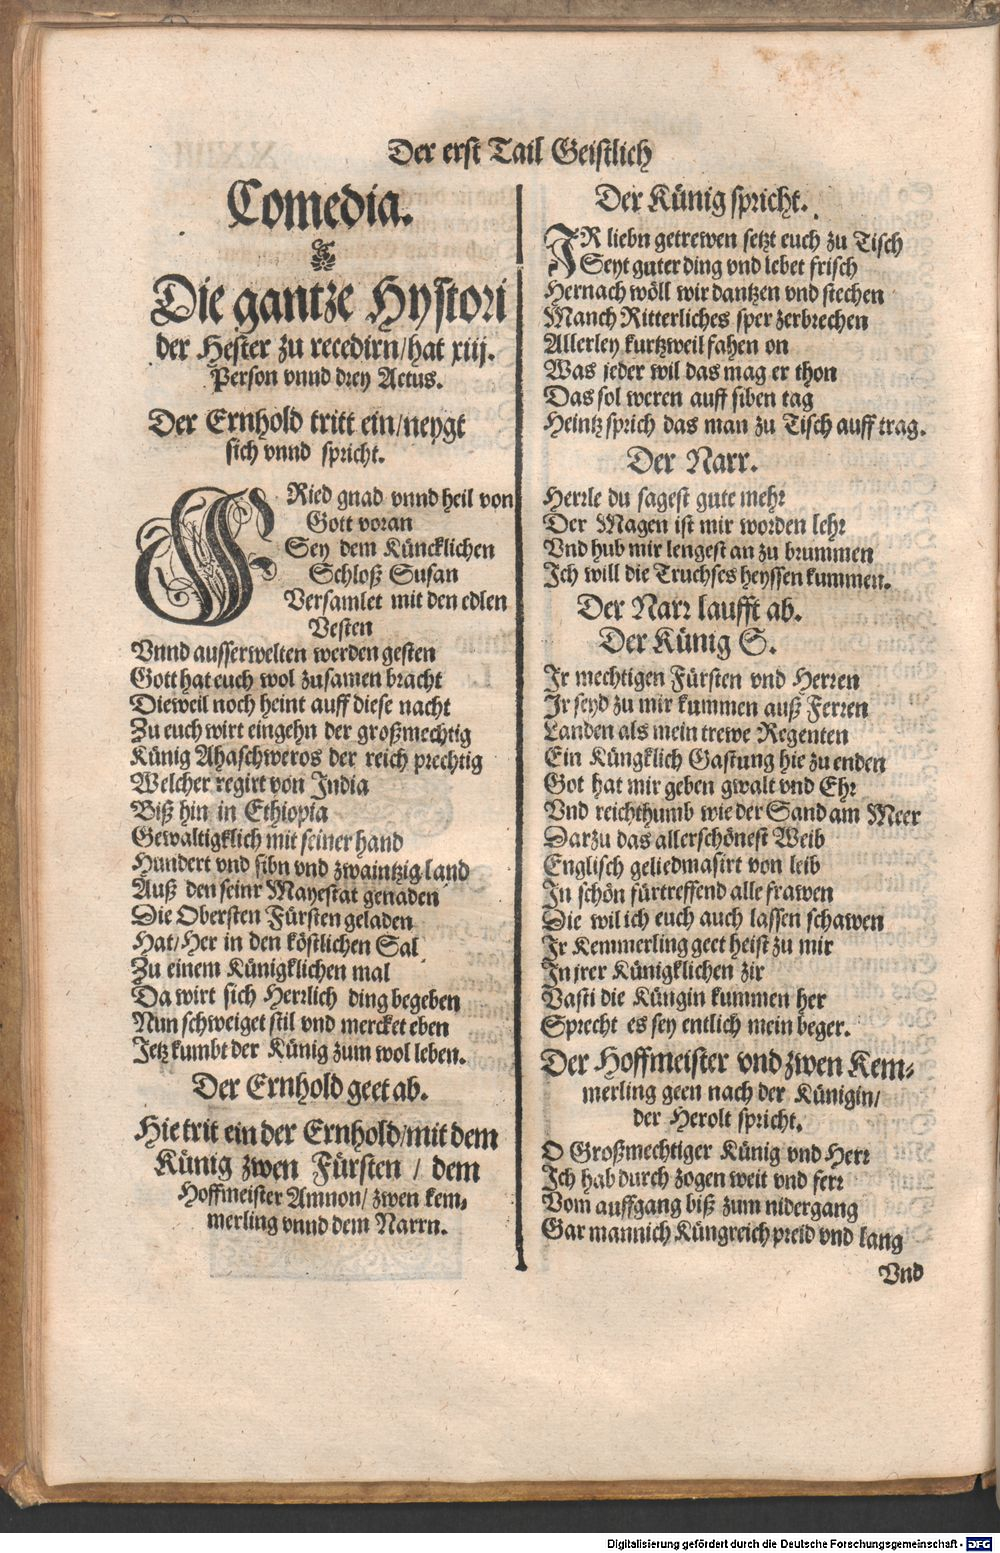 Der erst Tail Geistlich
Comedia.
Die gantze Hystori
der Hester zu recedirn/hat xiij.
Person vnnd drey Actus.
Der Ernhold tritt ein/neygt
sich vnnd spricht.
FRied gnad vnnd heil von
Gott voran
Sey dem Küncklichen
Schloß Susan
Versamlet mit den edlen
Vesten
Vnnd ausserwelten werden gesten
Gott hat euch wol zusamen bracht
Dieweil noch heint auff diese nacht
Zu euch wirt eingehn der großmechtig
Künig Ahaschweros der reich prechtig
Welcher regirt von India
Biß hin in Ethiopia
Gewaltigklich mit seiner hand
Hundert vnd sibn vnd zwaintzig land
Auß den seinr Mayestat genaden
Die Obersten Fürsten geladen
Hat/Her in den köstlichen Sal
Zu einem Künigklichen mal
Da wirt sich Herrlich ding begeben
Nun schweiget stil vnd mercket eben
Jetz kumbt der Künig zum wol leben.
Der Ernhold geet ab.
Hie trit ein der Ernhold/mit dem
Künig zwen Fürsten / dem
Hoffmeister Amnon/ zwen kem-
merling vnnd dem Narrn.
Der Künig spricht.
JR liebn getrewen setzt euch zu Tisch
Seyt guter ding vnd lebet frisch
Hernach wöll wir dantzen vnd stechen
Manch Ritterliches sper zerbrechen
Allerley kurtzweil fahen on
Was jeder wil das mag er thon
Das sol weren auff siben tag
Heintz sprich das man zu Tisch auff trag.
Der Narr.
Herrle du sagest gute mehr
Der Magen ist mir worden lehr
Vnd hub mir lengest an zu brummen
Ich will die Truchses heyssen kummen.
Der Narr laufft ab.
Der Künig S.
Ir mechtigen Fürsten vnd Herren
Ir seyd zu mir kummen auß Ferren
Landen als mein trewe Regenten
Ein Küngklich Gastung hie zu enden
Got hat mir geben gwalt vnd Ehr
Vnd reichthumb wie der Sand am Meer
Darzu das allerschönest Weib
Englisch geliedmasirt von leib
In schön fürtreffend alle frawen
Die wil ich euch auch lassen schawen
Ir Kemmerling geet heist zu mir
In jrer Künigklichen zir
Vasti die Küngin kummen her
Sprecht es sey entlich mein beger.
Der Hoffmeister vnd zwen Kem-
merling geen nach der Künigin/
der Herolt spricht.
O Großmechtiger Künig vnd Herr
Ich hab durch zogen weit vnd ferr
Vom auffgang biß zum nidergang
Gar mannich Küngreich preid vnd lang
Vnd
Digitalisierung gefördert durch die Deutsche Forschungsgemeinschaft - DFG